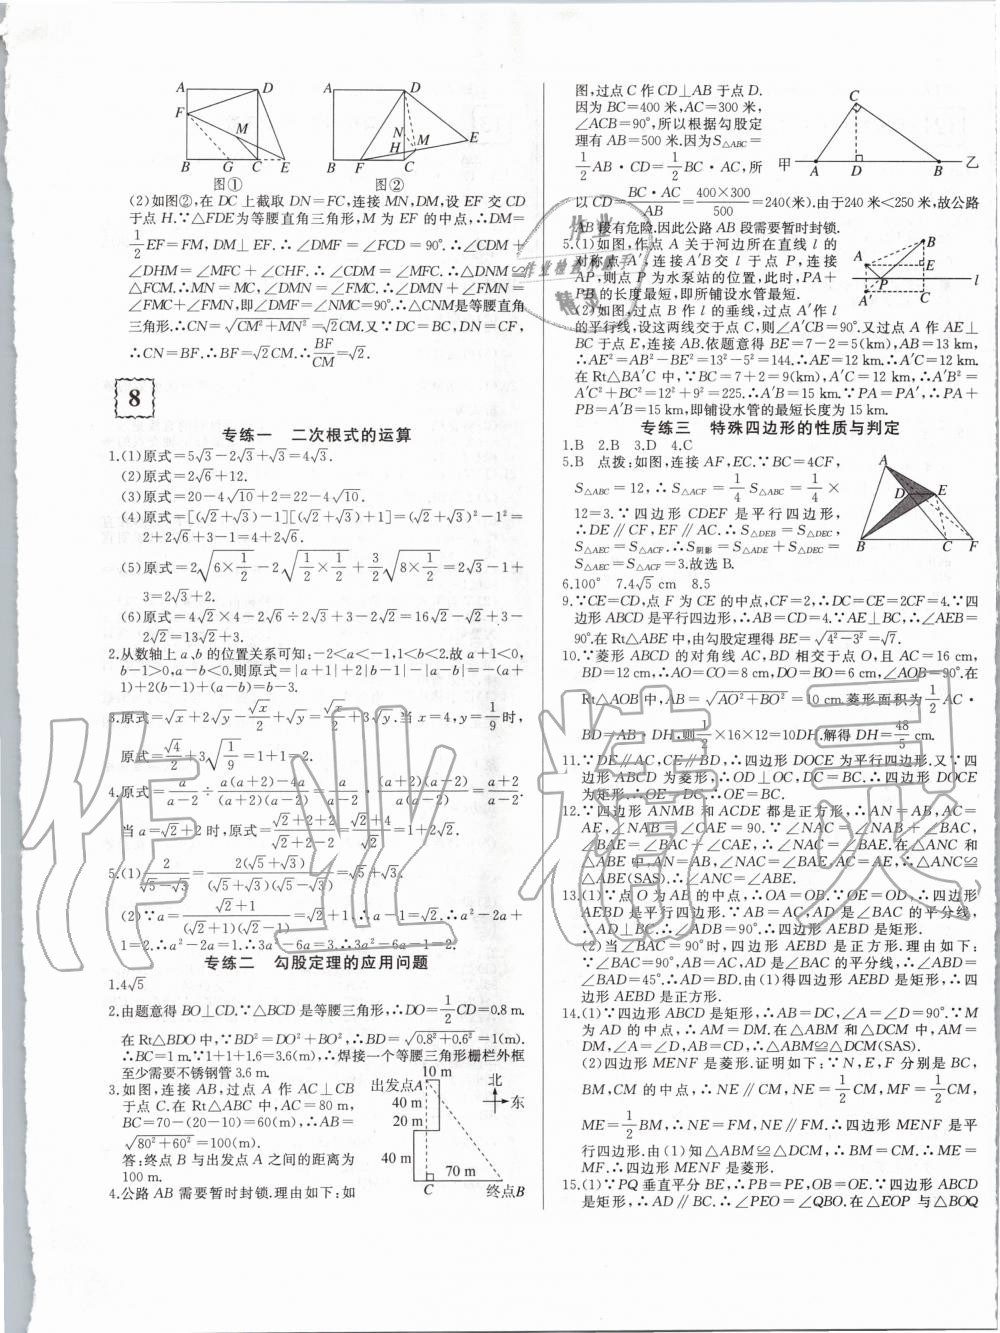 A D A D
F M N H M E
B G C E B F C
图① 图②
(2)如图②,在 DC 上截取 DN=FC,连接 MN,DM,设 EF 交 CD
于点 H.∵△FDE为等腰直角三角形,M 为 EF 的中点,∴DM=
1/2EF=FM,DM⊥EF.∴∠DMF=∠FCD=90°.∴∠CDM+
∠DHM=∠MFC+∠CHF.∴∠CDM=∠MFC.∴△DNM≌
△FCM.∴MN=MC,∠DMN=∠FMC.∴∠DMN+∠FMN=
∠FMC+∠FMN,即∠DMF=∠NMC=90°.∴△CNM是等腰直角
三角形.∴CN=√(CM²+MN²)=√2CM.又∵DC=BC,DN=CF,
∴CN=BF.∴BF=√2CM.∴BF/CM=√2.
8
专练一 二次根式的运算
1.(1)原式=5√3-2√3+√3=4√3.
(2)原式=2√6+12.
(3)原式=20-4√10+2=22-4√10.
(4)原式=[(√2+√3)-1][(√2+√3)+1]=(√2+√3)²-1²=
2+2√6+3-1=4+2√6.
(5)原式=2√(6×1/2)-2√(1/2×1/2)+3/2√(8×1/2)=2√3-1+
3=2√3+2.
(6)原式=4√2×4-2√6÷2√3+2√3=16√2-√2+3-
2√2=13√2+3.
2.从数轴上 a、b 的位置关系可知:-2<a<-1,1<b<2.故 a+1<0,
b-1>0,a-b<0.则原式=|a+1|+2|b-1|-|a-b|=-(a+
1)+2(b-1)+(a-b)=b-3.
3.原式=√x+2√y-√x/2+√y=√x/2+3√y.当 x=4,y=1/9时,
原式=√4/2+3√(1/9)=1+1=2.
4.原式=a/(a-2)÷(a(a+2)-4a)/((a+2)(a-2))=a/(a-2)·((a+2)(a-2))/(a(a-2))=(a+2)/(a-2).
当 a=√2+2时,原式=(√2+2+2)/(√2+2-2)=(√2+4)/√2=1+2√2.
5.(1)2/(√5-√3)=2(√5+√3)/((√5+√3)(√5-√3))=√5+√3.
(2)∵a=(√2+1)/((√2+1)(√2-1))=√2+1.∴a-1=√2.∴a²-2a+
1=2.∴a²-2a=1.∴3a²-6a=3.∴3a²-6a-1=2.
专练二 勾股定理的应用问题
1.4√5
2.由题意得 BO⊥CD.∵△BCD是等腰三角形,∴DO=1/2CD=0.8 m.
在 Rt△BDO 中,∵BD²=DO²+BO²,∴BD=√(0.8²+0.6²)=1(m).
∴BC=1 m.∵1+1+1.6=3.6(m),∴焊接一个等腰三角形栅栏外框
至少需要不锈钢管 3.6 m.
3.如图,连接 AB,过点 A 作 AC⊥CB
于点 C.在 Rt△ABC 中,AC=80 m,
BC=70-(20-10)=60(m),∴AB=
√(80²+60²)=100(m).
答:终点 B 与出发点 A 之间的距离为
100 m.
10 m
出发点A
40 m
20 m
40 m
70 m
C 终点B
北
东
4.公路 AB 需要暂时封锁.理由如下:如
图,过点 C 作 CD⊥AB 于点 D.
因为 BC=400 米,AC=300 米,
∠ACB=90°,所以根据勾股定
理有 AB=500 米.因为S△ABC=
1/2AB·CD=1/2BC·AC,所
以 CD=(BC·AC)/AB=(400×300)/500=240(米).由于240米<250米,故公路
AB 段有危险.因此公路 AB 段需要暂时封锁.
C
甲 A D B 乙
5.(1)如图,作点 A 关于河边所在直线 l 的
对称点 A′,连接 A′B 交 l 于点 P,连接
AP,则点 P 为水泵站的位置,此时,PA+
PB的长度最短,即所铺设水管最短.
(2)如图,过点 B 作 l 的垂线,过点 A′作 l
的平行线,设这两线交于点 C,则∠A′CB=90°.又过点 A 作 AE⊥
BC于点 E,连接 AB.依题意得 BE=7-2=5(km),AB=13 km,
∴AE²=AB²-BE²=13²-5²=144.∴AE=12 km.∴A′C=12 km.
在 Rt△BA′C 中,∵BC=7+2=9(km),A′C=12 km,∴A′B²=
A′C²+BC²=12²+9²=225.∴A′B=15 km.∵PA=PA′,∴PA+
PB=A′B=15 km,即铺设水管的最短长度为 15 km.
B
A E
P l
A′ C
专练三 特殊四边形的性质与判定
1.B 2.B 3.D 4.C
5.B 点拨:如图,连接 AF,EC.∵BC=4CF,
S△ABC=12,∴S△ACF=1/4S△ABC=1/4×
12=3.∵四边形 CDEF 是平行四边形,
∴DE∥CF,EF∥AC.∴S△DEB=S△DEC,
S△AEC=S△ACF.∴S阴影=S△ADE+S△DEC=
S△AEC=S△ACF=3.故选 B.
A
D E
B C F
6.100° 7.4√5 cm 8.5
9.∵CE=CD,点 F 为 CE 的中点,CF=2,∴DC=CE=2CF=4.∵四
边形 ABCD 是平行四边形,∴AB=CD=4.∵AE⊥BC,∴∠AEB=
90°.在 Rt△ABE 中,由勾股定理得 BE=√(4²-3²)=√7.
10.∵菱形 ABCD 的对角线 AC,BD 相交于点 O,且 AC=16 cm,
BD=12 cm,∴AO=CO=8 cm,DO=BO=6 cm,∠AOB=90°.在
Rt△AOB 中,AB=√(AO²+BO²)=10 cm.菱形面积为1/2AC·
BD=AB·DH,则1/2×16×12=10DH.解得 DH=48/5 cm.
11.∵DE∥AC,CE∥BD,∴四边形 DOCE 为平行四边形.又∵四
边形 ABCD 为菱形,∴OD⊥OC,DC=BC.∴四边形 DOCE
为矩形.∴OE=DC.∴OE=BC.
12.∵四边形 ANMB 和 ACDE 都是正方形,∴AN=AB,AC=
AE,∠NAB=∠CAE=90°.∵∠NAC=∠NAB+∠BAC,
∠BAE=∠BAC+∠CAE,∴∠NAC=∠BAE.在△ANC 和
△ABE 中,AN=AB,∠NAC=∠BAE,AC=AE,∴△ANC≌
△ABE(SAS).∴∠ANC=∠ABE.
13.(1)∵点 O 为 AB 的中点,∴OA=OB.∵OE=OD,∴四边形
AEBD 是平行四边形.∵AB=AC,AD 是∠BAC 的平分线,
∴AD⊥BC.∴∠ADB=90°.∴四边形 AEBD 是矩形.
(2)当∠BAC=90°时,四边形 AEBD 是正方形.理由如下:
∵∠BAC=90°,AB=AC,AD 是∠BAC 的平分线,∴∠ABD=
∠BAD=45°.∴AD=BD.由(1)得四边形 AEBD 是矩形,∴四
边形 AEBD 是正方形.
14.(1)∵四边形 ABCD 是矩形,∴AB=DC,∠A=∠D=90°.∵M
为 AD 的中点,∴AM=DM.在△ABM 和△DCM 中,AM=
DM,∠A=∠D,AB=CD,∴△ABM≌△DCM(SAS).
(2)四边形 MENF 是菱形.证明如下:∵N,E,F 分别是 BC,
BM,CM 的中点,∴NE∥CM,NE=1/2CM,MF=1/2CM,
ME=1/2BM,∴NE=FM,NE∥FM.∴四边形 MENF 是平行
四边形.由(1)知△ABM≌△DCM,∴BM=CM.∴ME=
MF.∴四边形 MENF 是菱形.
15.(1)∵PQ 垂直平分 BE,∴PB=PE,OB=OE.∵四边形 ABCD
是矩形,∴AD∥BC.∴∠PEO=∠QBO.在△EOP 与△BOQ
作业精灵